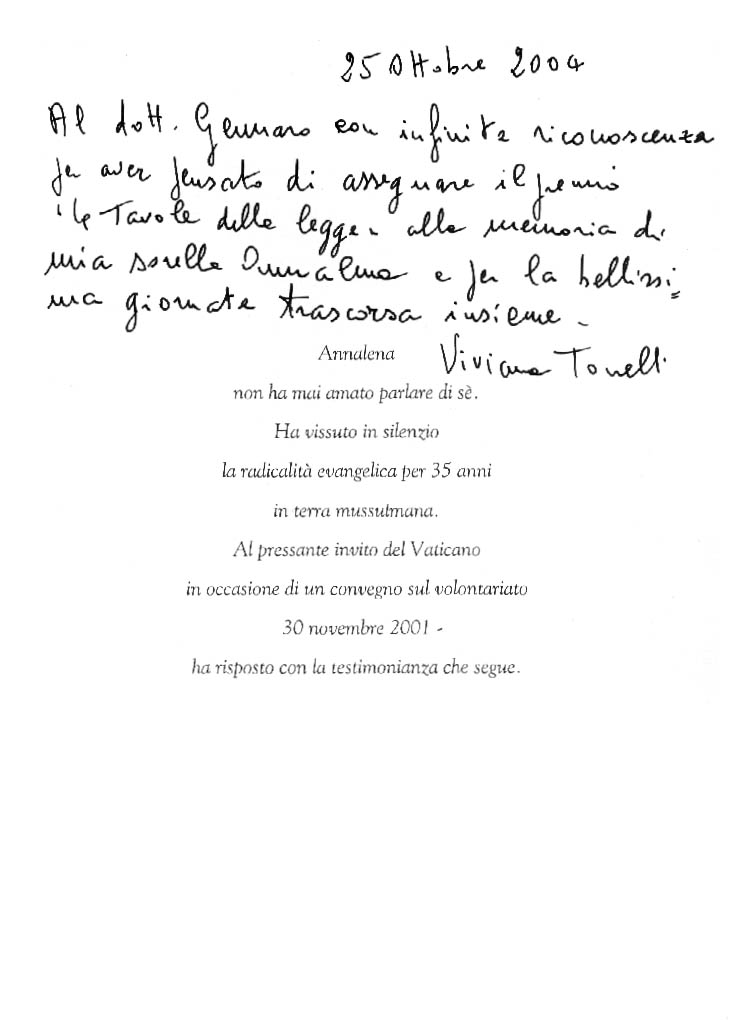 25 Ottobre 2004
Al dott. Gennaro con infinita riconoscenza
per aver pensato di assegnare il premio
"Le Tavole della legge" alla memoria di
mia sorella Annalena e per la bellissi=
ma giornata trascorsa insieme.
Viviana Tonelli
Annalena
non ha mai amato parlare di sè.
Ha vissuto in silenzio
la radicalità evangelica per 35 anni
in terra mussulmana.
Al pressante invito del Vaticano
in occasione di un convegno sul volontariato
30 novembre 2001 -
ha risposto con la testimonianza che segue.